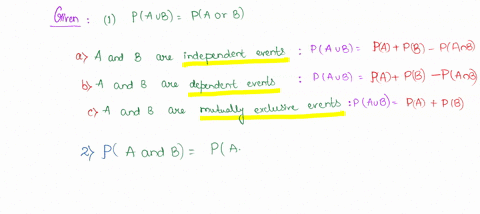 Given : (1) P(A∪B) = P(A or B)
a) A and B are independent events : P(A∪B) = P(A) + P(B) - P(A∩B)
b) A and B are dependent events : P(A∪B) = P(A) + P(B) - P(A∩B)
c) A and B are mutually exclusive events : P(A∪B) = P(A) + P(B)
2) P( A and B) = P(A